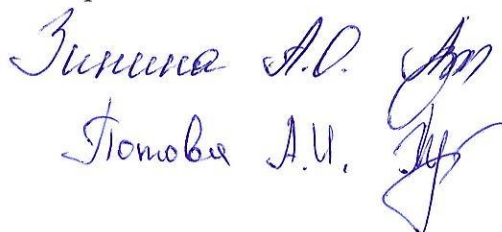 Зинина А.О.
Попова А.И.